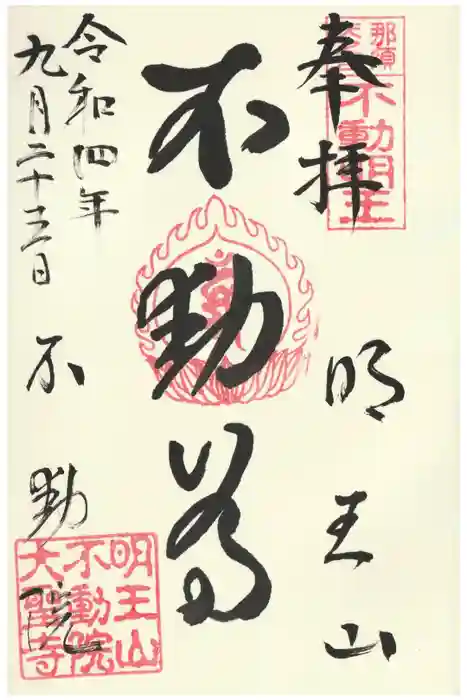 奉拝
明王山
不動尊
令和四年
九月二十三日
不動院
那須
不動明王
明王山
不動院
大聖寺